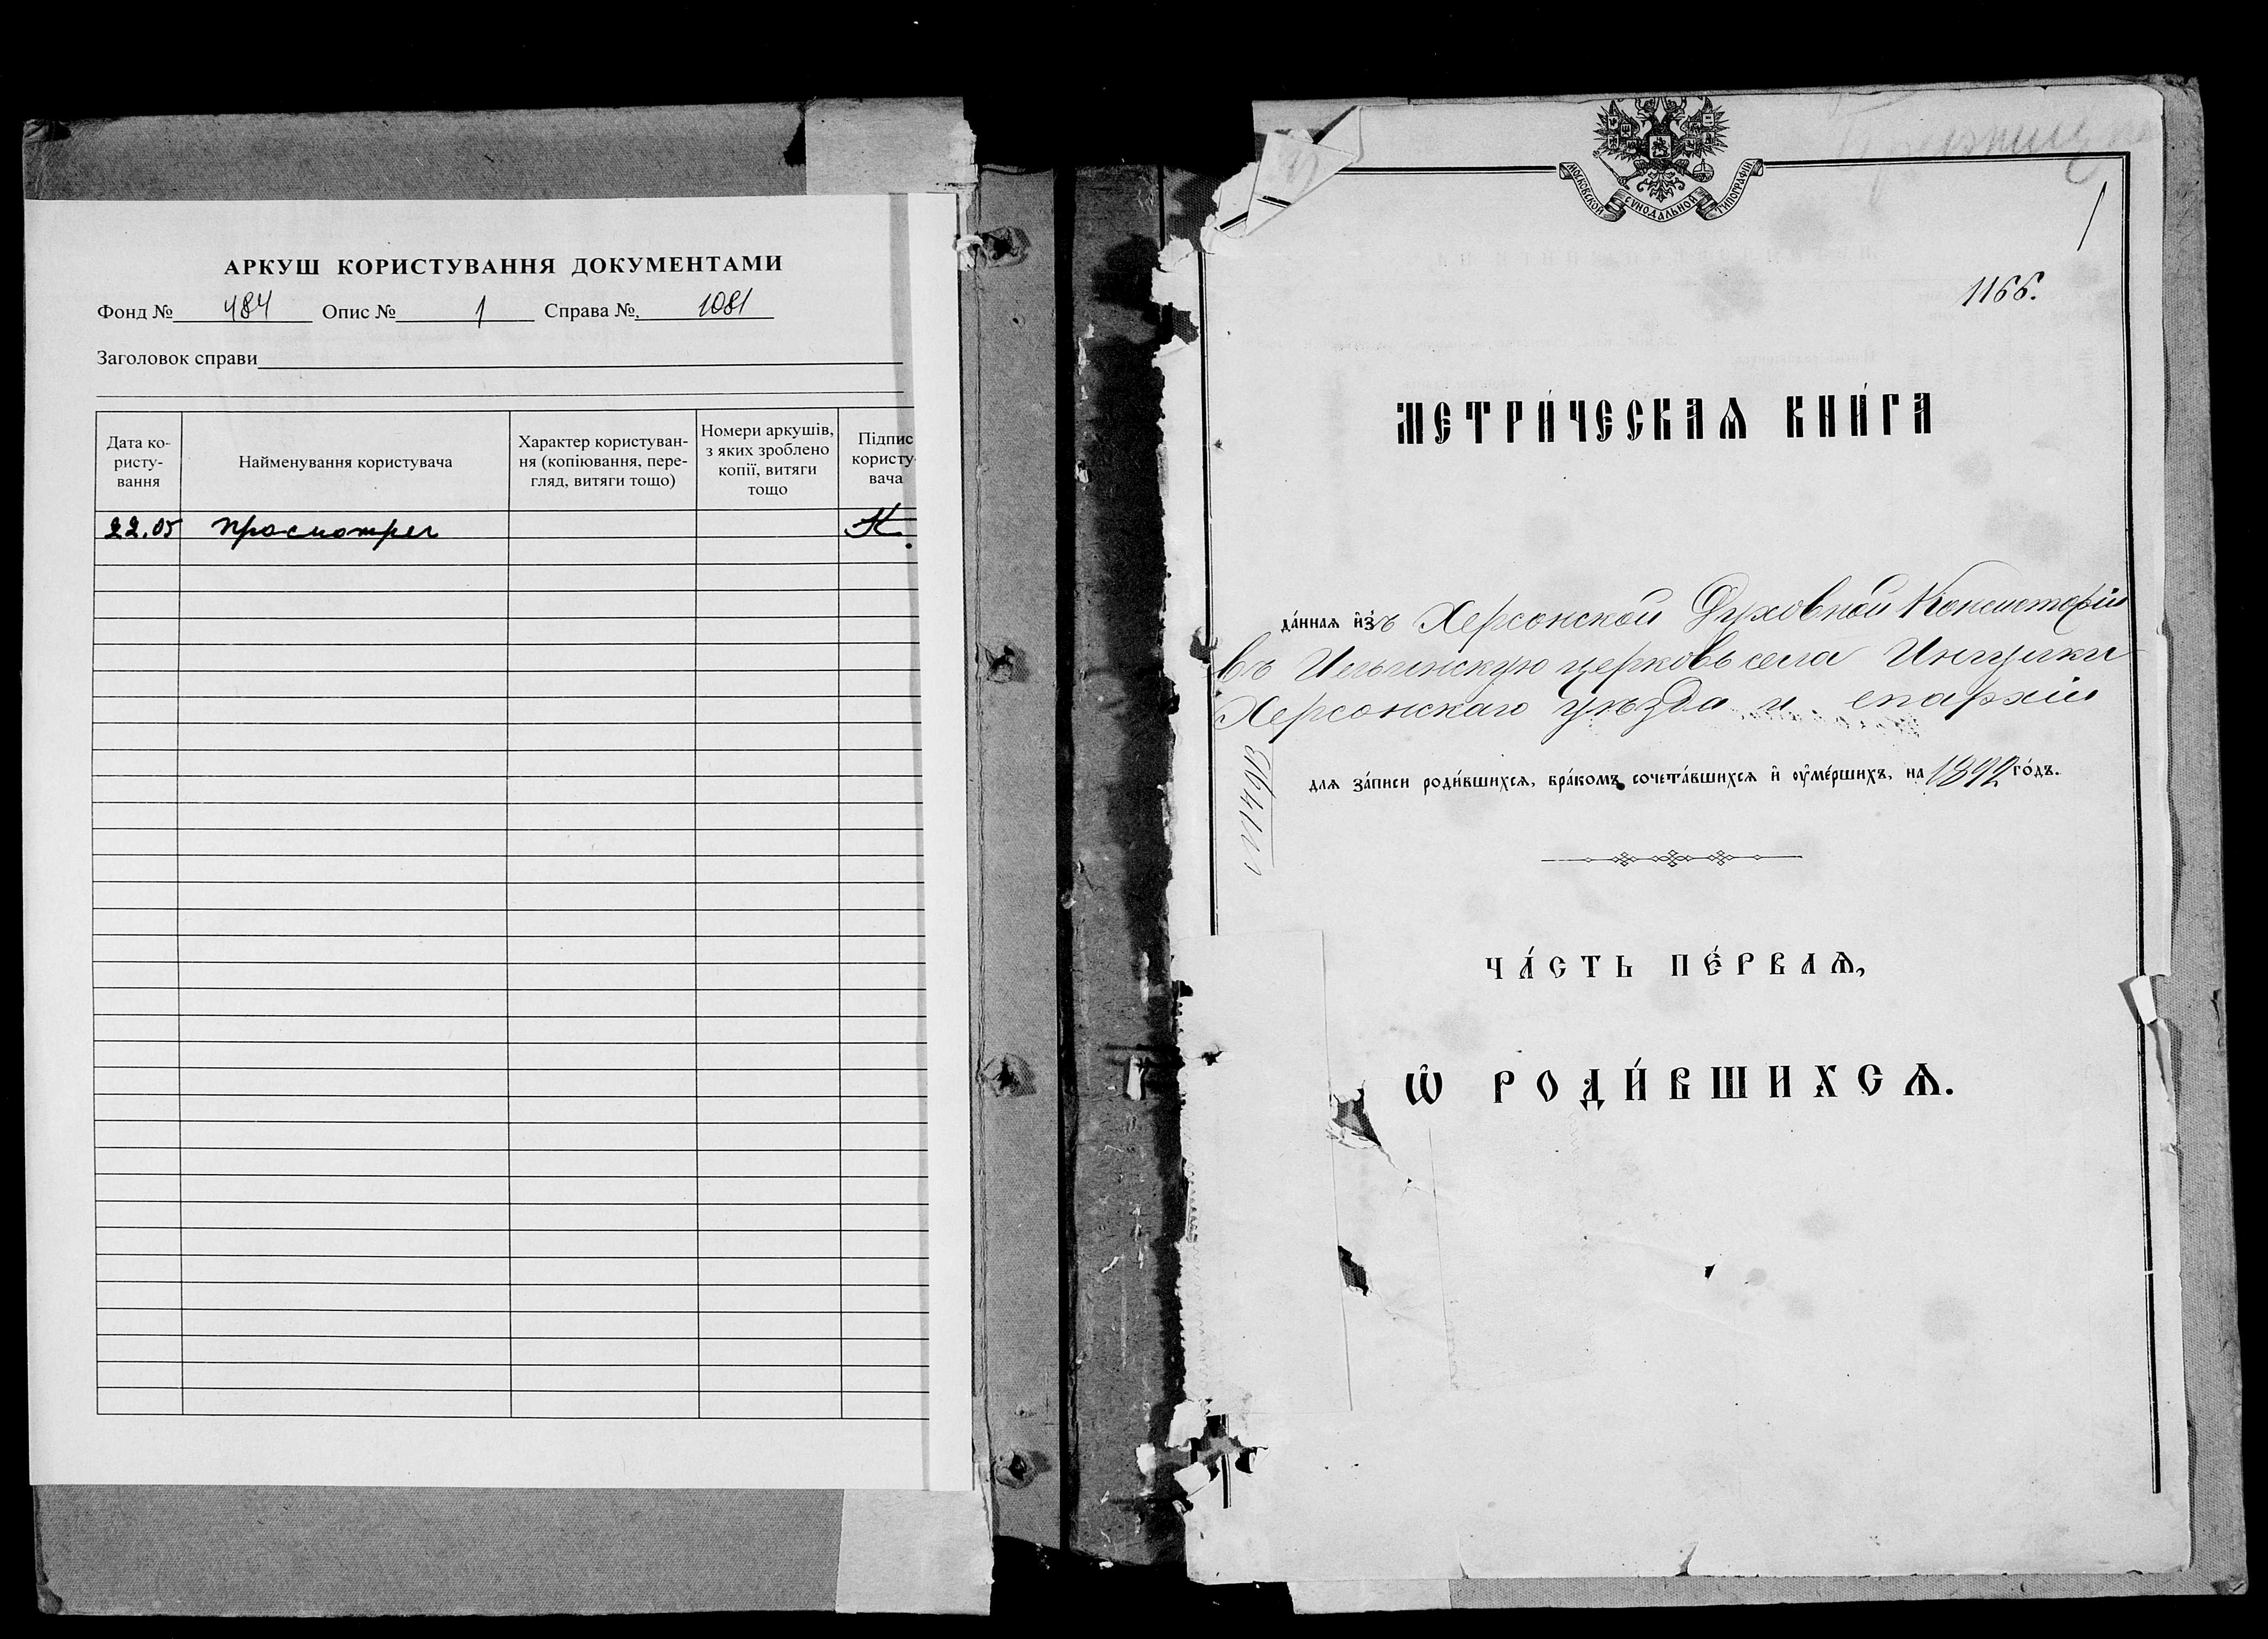 АРКУШ КОРИСТУВАННЯ ДОКУМЕНТАМИ
Фонд № 484 Опис № 1 Справа №. 1081
Заголовок справи
Дата ко-
ристу-
вання
Найменування користувача
Характер користуван-
ня (копіювання, пере-
гляд, витяги тощо)
Номери аркушів,
з яких зроблено
копії, витяги
тощо
Підпис
користу-
вача
22.05 просмотрел
МОСКОВСКОЙ СѴНОДАЛЬНОЙ ТИПОГРАФІИ
1
1166.
МЕТРИ́ЧЕСКАѦ КНИ́ГА
да́ннаѧ и҆зъ Херсонской Духовной Консисторіи
въ Ильинскую церковь села
Херсонскаго уѣзда и епархіи
длѧ за́писи роди́вшихсѧ, бра́комъ сочета́вшихсѧ и҆ ᲂу҆ме́ршихъ, на 1892 го́дъ.
ЧА́СТЬ ПЕ́РВАѦ,
Ѡ҆ РОДИ́ВШИХСѦ.